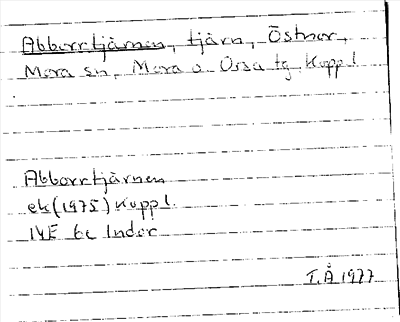 Abborrtjärnen, tjärn, Östnor,
Mora sn, Mora o Orsa tg. Koppl.
Abborrtjärnen
ek (1975) Koppl.
14E 6c Indor
T.Å 1977